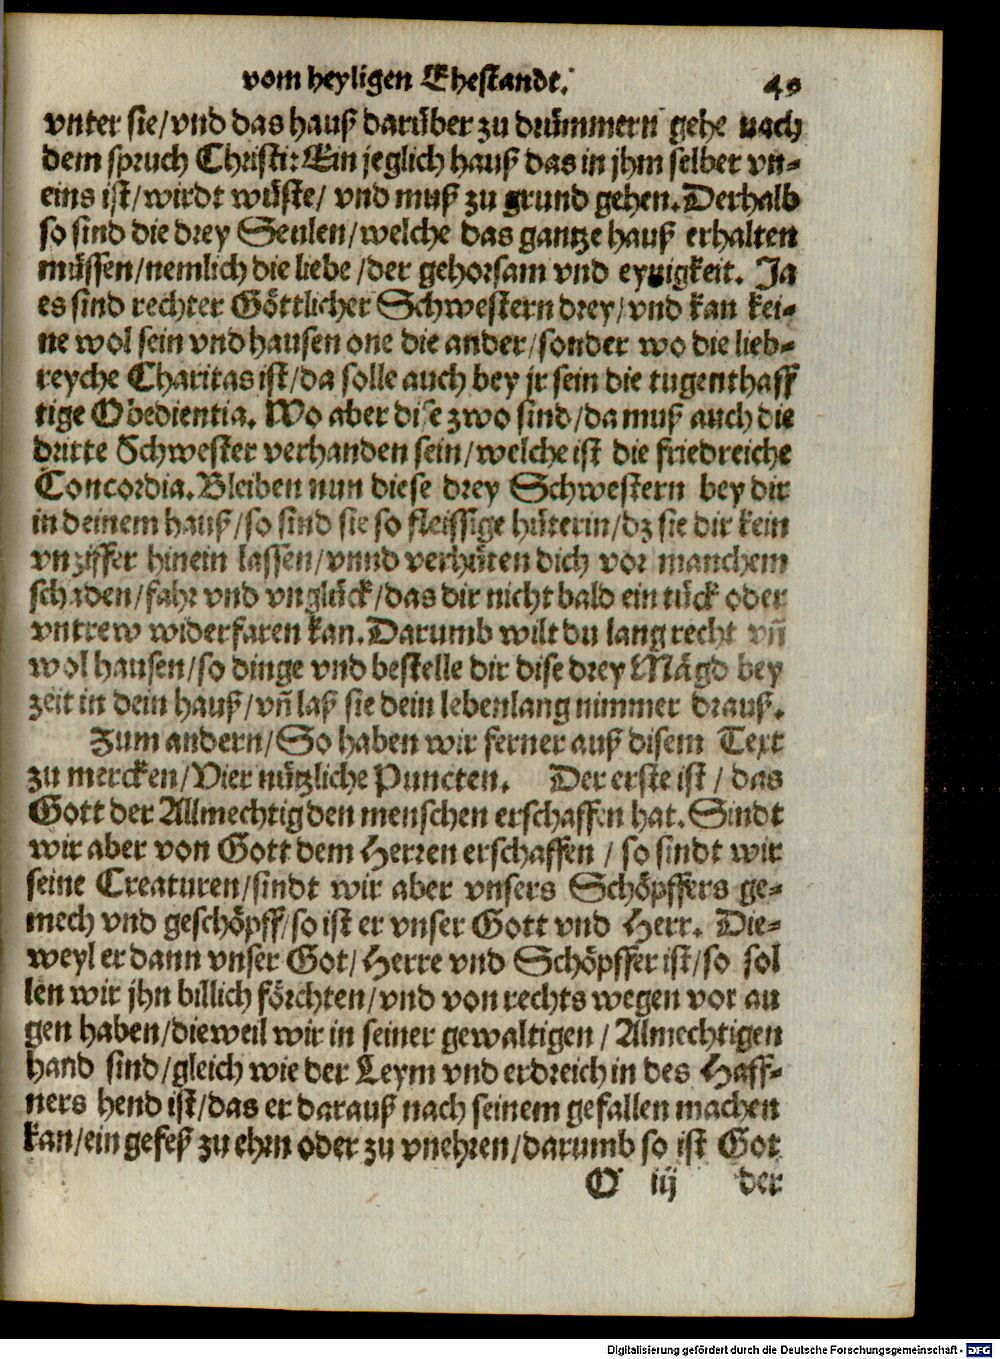 vom heyligen Ehestandt. 49
vnter sie/vnd das hauß darüber zu drümmern gehe nach
dem spruch Christi: Ein jeglich hauß das in jhm selber vn-
eins ist/wirdt wüste/ vnd muß zu grund gehen. Derhalb
so sind die drey Seulen/welche das gantze hauß erhalten
müssen/nemlich die liebe/der gehorsam vnd eynigkeit. Ja
es sind rechter Göttlicher Schwestern drey/vnd kan kei-
ne wol sein vnd hausen one die ander/sonder wo die lieb-
reyche Charitas ist/da solle auch bey jr sein die tugenthaff
tige Obedientia. Wo aber dise zwo sind/da muß auch die
dritte Schwester verhanden sein/welche ist die friedreiche
Concordia. Bleiben nun diese drey Schwestern bey dir
in deinem hauß/so sind sie so fleissige hüterin/dz sie dir kein
vnziffer hinein lassen/vnnd verhüten dich vor manchem
schaden/fahr vnd vnglück/das dir nicht bald ein tück oder
vntrew widerfaren kan. Darumb wilt du lang recht vñ
wol hausen/so dinge vnd bestelle dir dise drey Mägd bey
zeit in dein hauß/vñ laß sie dein lebenlang nimmer drauß.
Zum andern/So haben wir ferner auß disem Text
zu mercken/Vier nützliche Puncten. Der erste ist/ das
Gott der Allmechtig den menschen erschaffen hat. Sindt
wir aber von Gott dem Herren erschaffen/ so sindt wir
seine Creaturen/sindt wir aber vnsers Schöpffers ge-
mech vnd geschöpff/so ist er vnser Gott vnd Herr. Die-
weyl er dann vnser Got/ Herre vnd Schöpffer ist/so sol
len wir jhn billich förchten/vnd von rechts wegen vor au
gen haben/dieweil wir in seiner gewaltigen/ Almechtigen
hand sind/gleich wie der Leym vnd erdreich in des Haff-
ners hend ist/das er darauß nach seinem gefallen machen
kan/ein gefeß zu ehrn oder zu vnehren/darumb so ist Got
O iij der
Digitalisierung gefördert durch die Deutsche Forschungsgemeinschaft - DFG